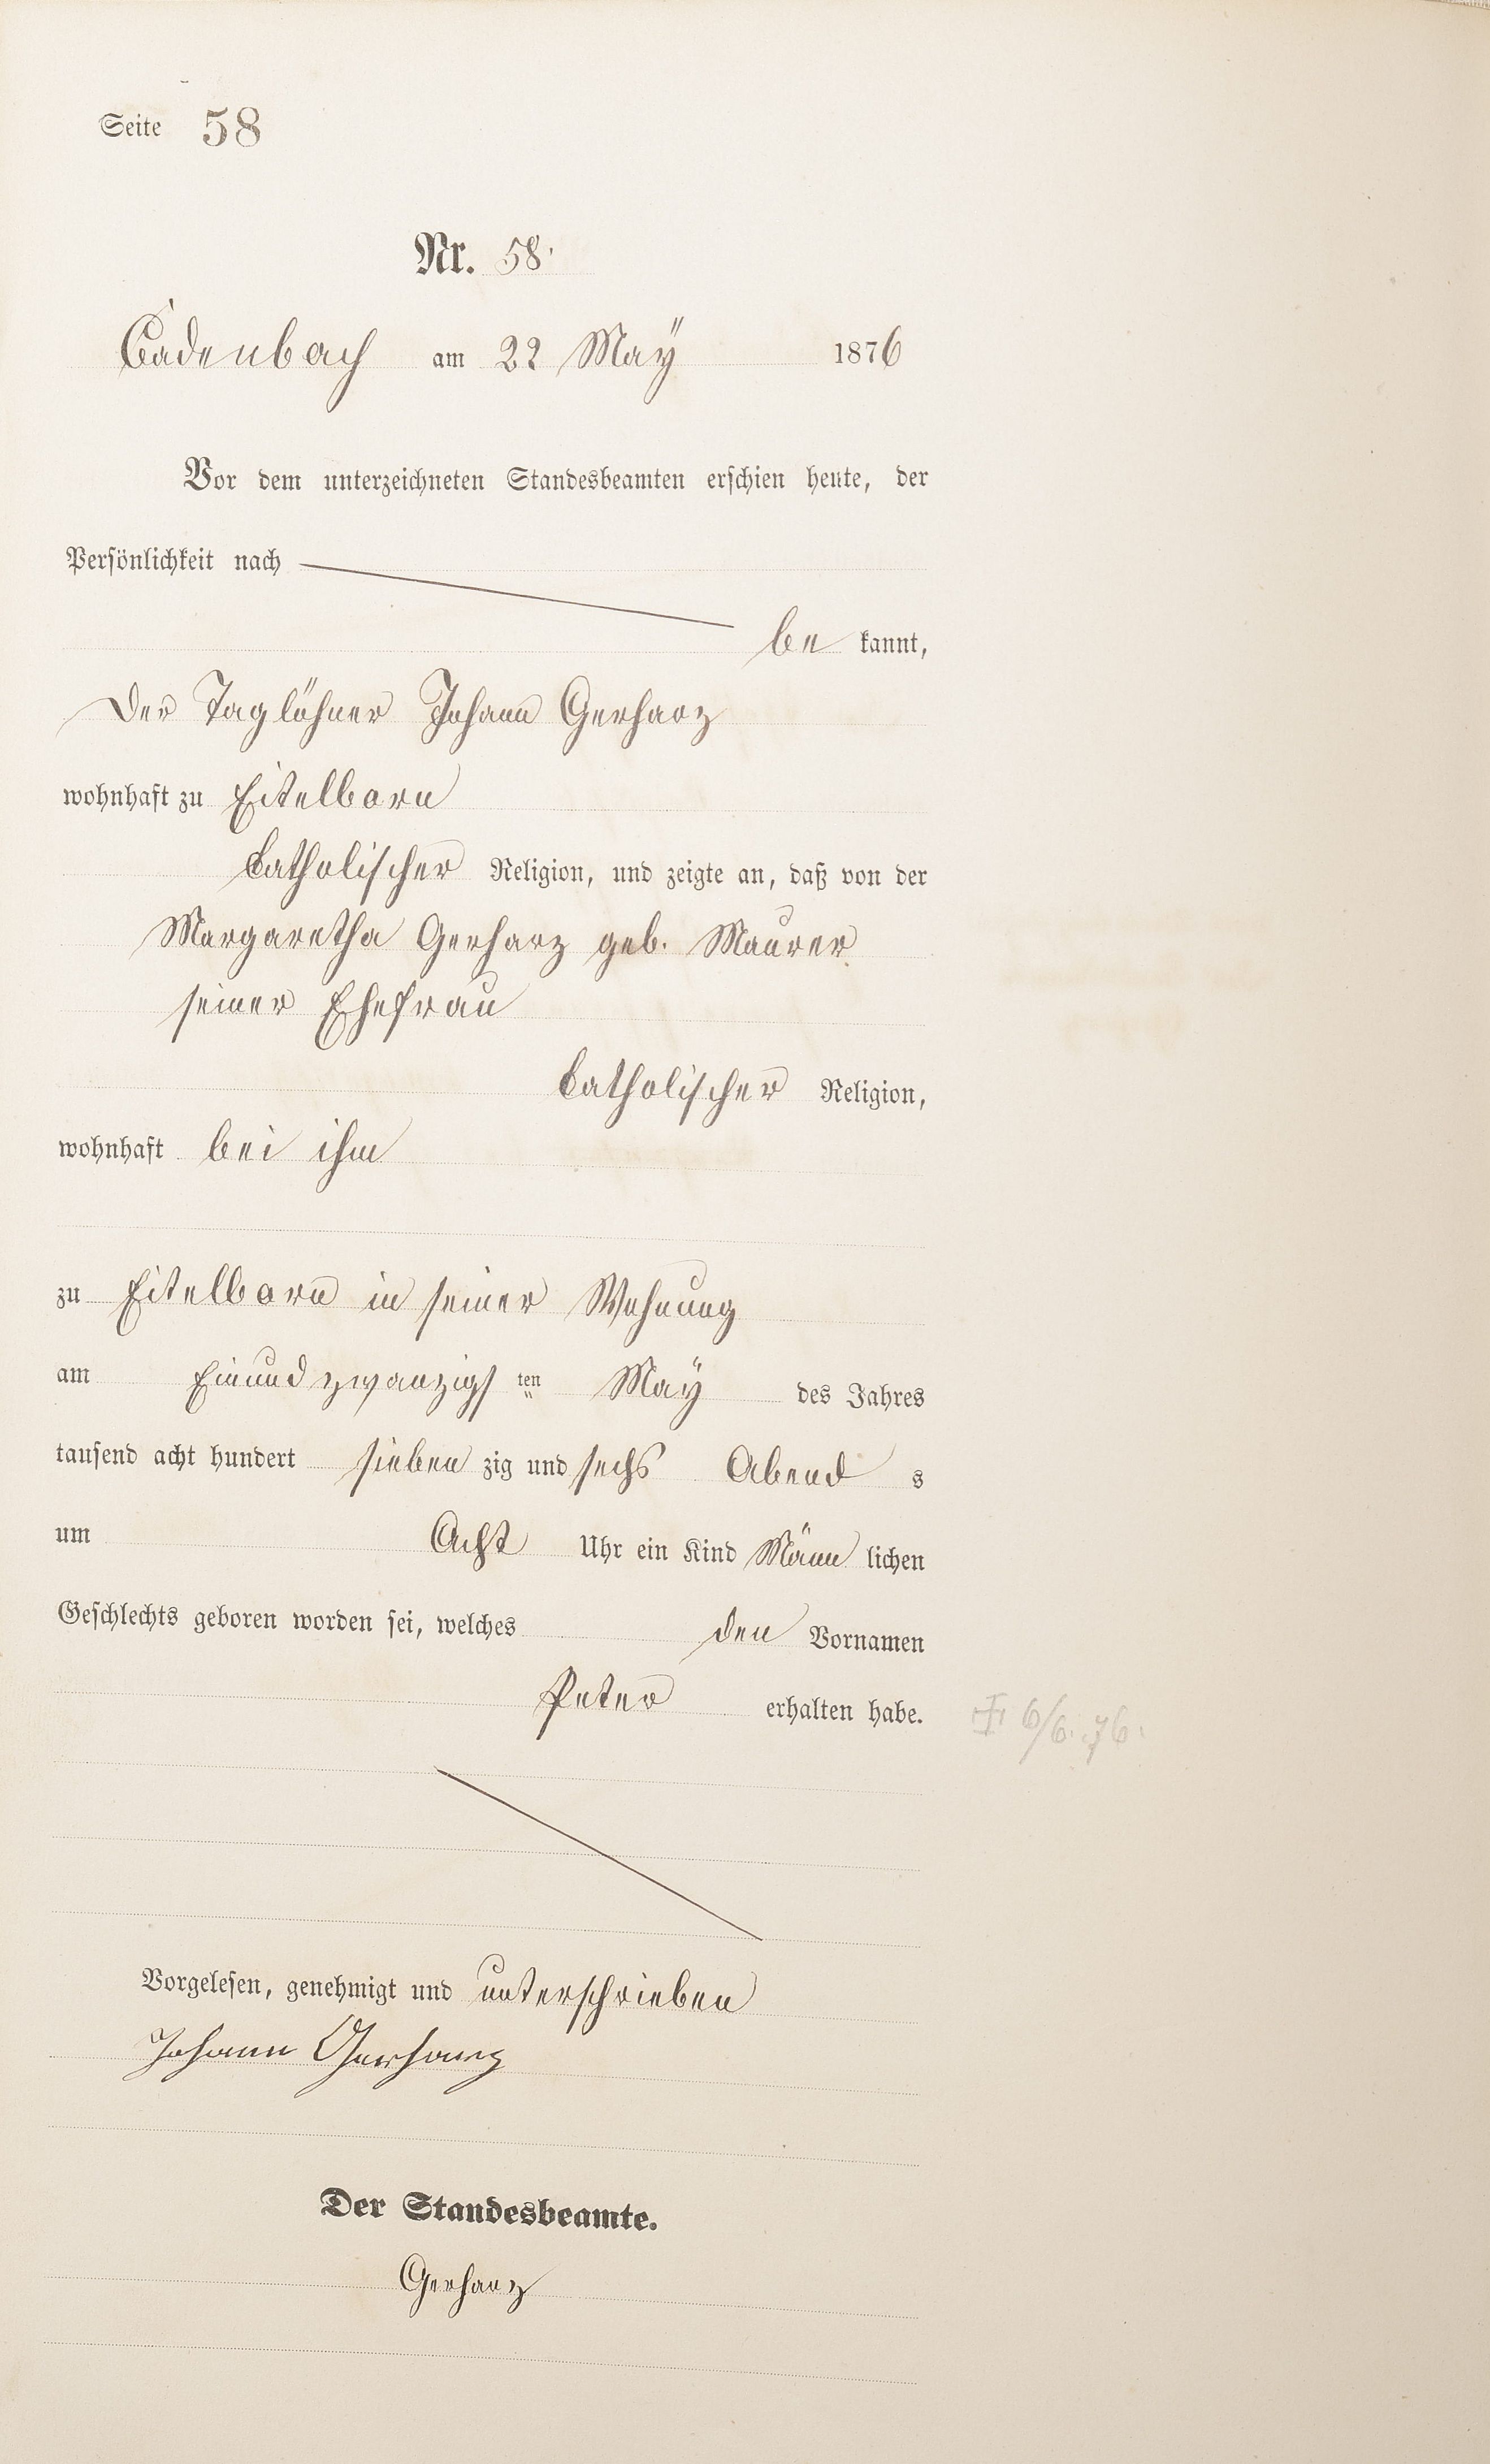 Seite 58
Nr. 58.
Cadenbach am 22 May 1876
Vor dem unterzeichneten Standesbeamten erschien heute, der
Persönlichkeit nach
be kannt,
Der Taglöhner Johann Gerharz
wohnhaft zu Eitelborn
Catholischer Religion, und zeigte an, daß von der
Margaretha Gerharz geb. Maurer
seiner Ehefrau
Catholischer Religion,
wohnhaft bei ihm
zu Eitelborn in seiner Wohnung
am Einundzwanzigs ten May des Jahres
tausend acht hundert sieben zig und sechs Abend s
um Acht Uhr ein Kind Männ lichen
Geschlechts geboren worden sei, welches den Vornamen
Peter erhalten habe.
6/6. 76.
Vorgelesen, genehmigt und unterschrieben
Johann Gerharz
Der Standesbeamte.
Gerharz